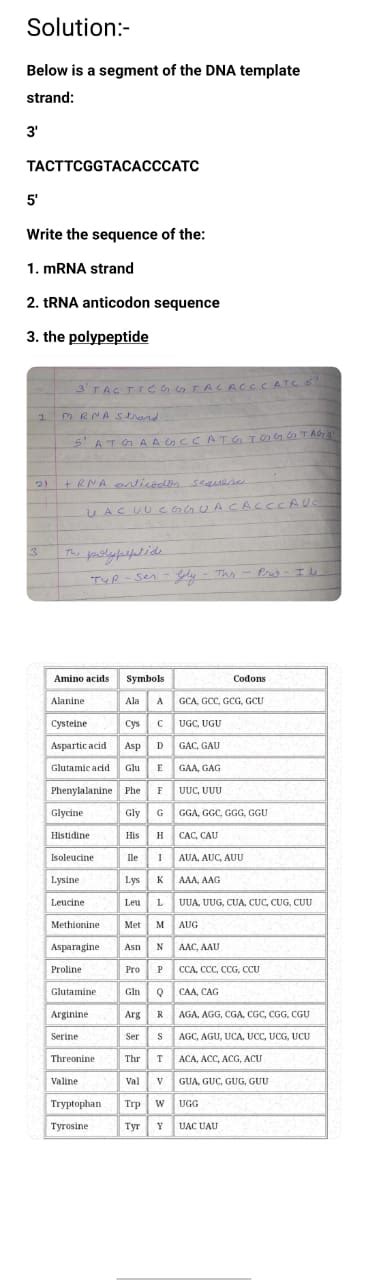 Solution:-
Below is a segment of the DNA template
strand:
3'
TACTTCGGTACACCCATC
5'
Write the sequence of the:
1. mRNA strand
2. tRNA anticodon sequence
3. the polypeptide
3' TAC TTC GG TAC ACCC ATC 5'
1 mRNA strand
5' ATG AAGCC ATG TGGG TAG 3'
2) tRNA anticodon sequence
UAC UUCGGUACACCCAUC
3 The polypeptide
TYR - Ser - Gly - Thr - Pro - Ile
Amino acids Symbols Codons
Alanine Ala A GCA, GCC, GCG, GCU
Cysteine Cys C UGC, UGU
Aspartic acid Asp D GAC, GAU
Glutamic acid Glu E GAA, GAG
Phenylalanine Phe F UUC, UUU
Glycine Gly G GGA, GGC, GGG, GGU
Histidine His H CAC, CAU
Isoleucine Ile I AUA, AUC, AUU
Lysine Lys K AAA, AAG
Leucine Leu L UUA, UUG, CUA, CUC, CUG, CUU
Methionine Met M AUG
Asparagine Asn N AAC, AAU
Proline Pro P CCA, CCC, CCG, CCU
Glutamine Gln Q CAA, CAG
Arginine Arg R AGA, AGG, CGA, CGC, CGG, CGU
Serine Ser S AGC, AGU, UCA, UCC, UCG, UCU
Threonine Thr T ACA, ACC, ACG, ACU
Valine Val V GUA, GUC, GUG, GUU
Tryptophan Trp W UGG
Tyrosine Tyr Y UAC UAU